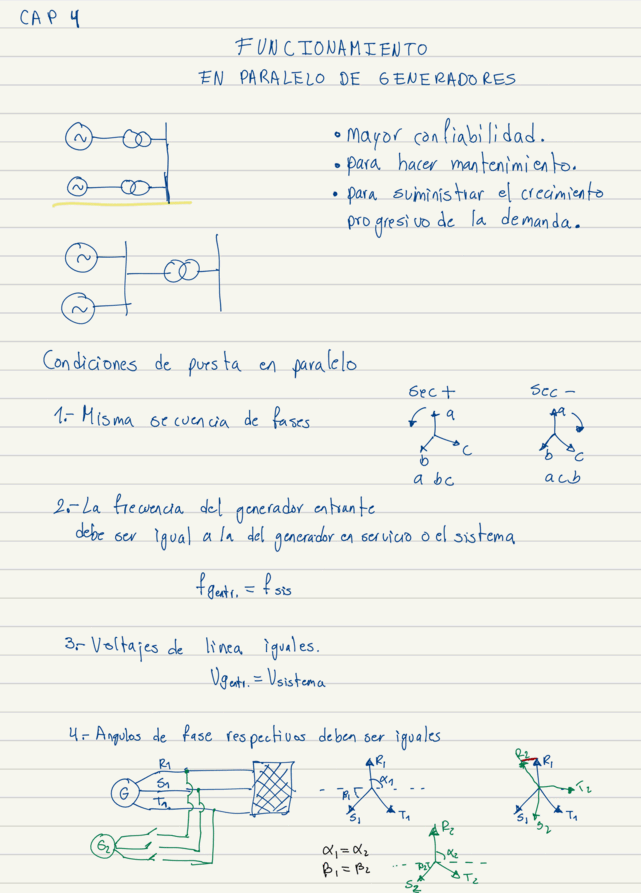 CAP 4
FUNCIONAMIENTO
EN PARALELO DE GENERADORES
~
~
• Mayor confiabilidad.
• para hacer mantenimiento.
• para suministrar el crecimiento
progresivo de la demanda.
~
~
Condiciones de puesta en paralelo
sec +
sec -
1.- Misma secuencia de fases
a
b
c
a
b
c
a bc
acb
2.- La frecuencia del generador entrante
debe ser igual a la del generador en servicio o el sistema
fgentr. = fsis
3.- Voltajes de linea iguales.
Vgentr. = Vsistema
4.- Angulos de fase respectivos deben ser iguales
R1
S1
T1
G
G2
R1
α1
β1
S1
T1
R2
R1
T2
S1
S2
T1
α1 = α2
β1 = β2
R2
α2
β2
S2
T2